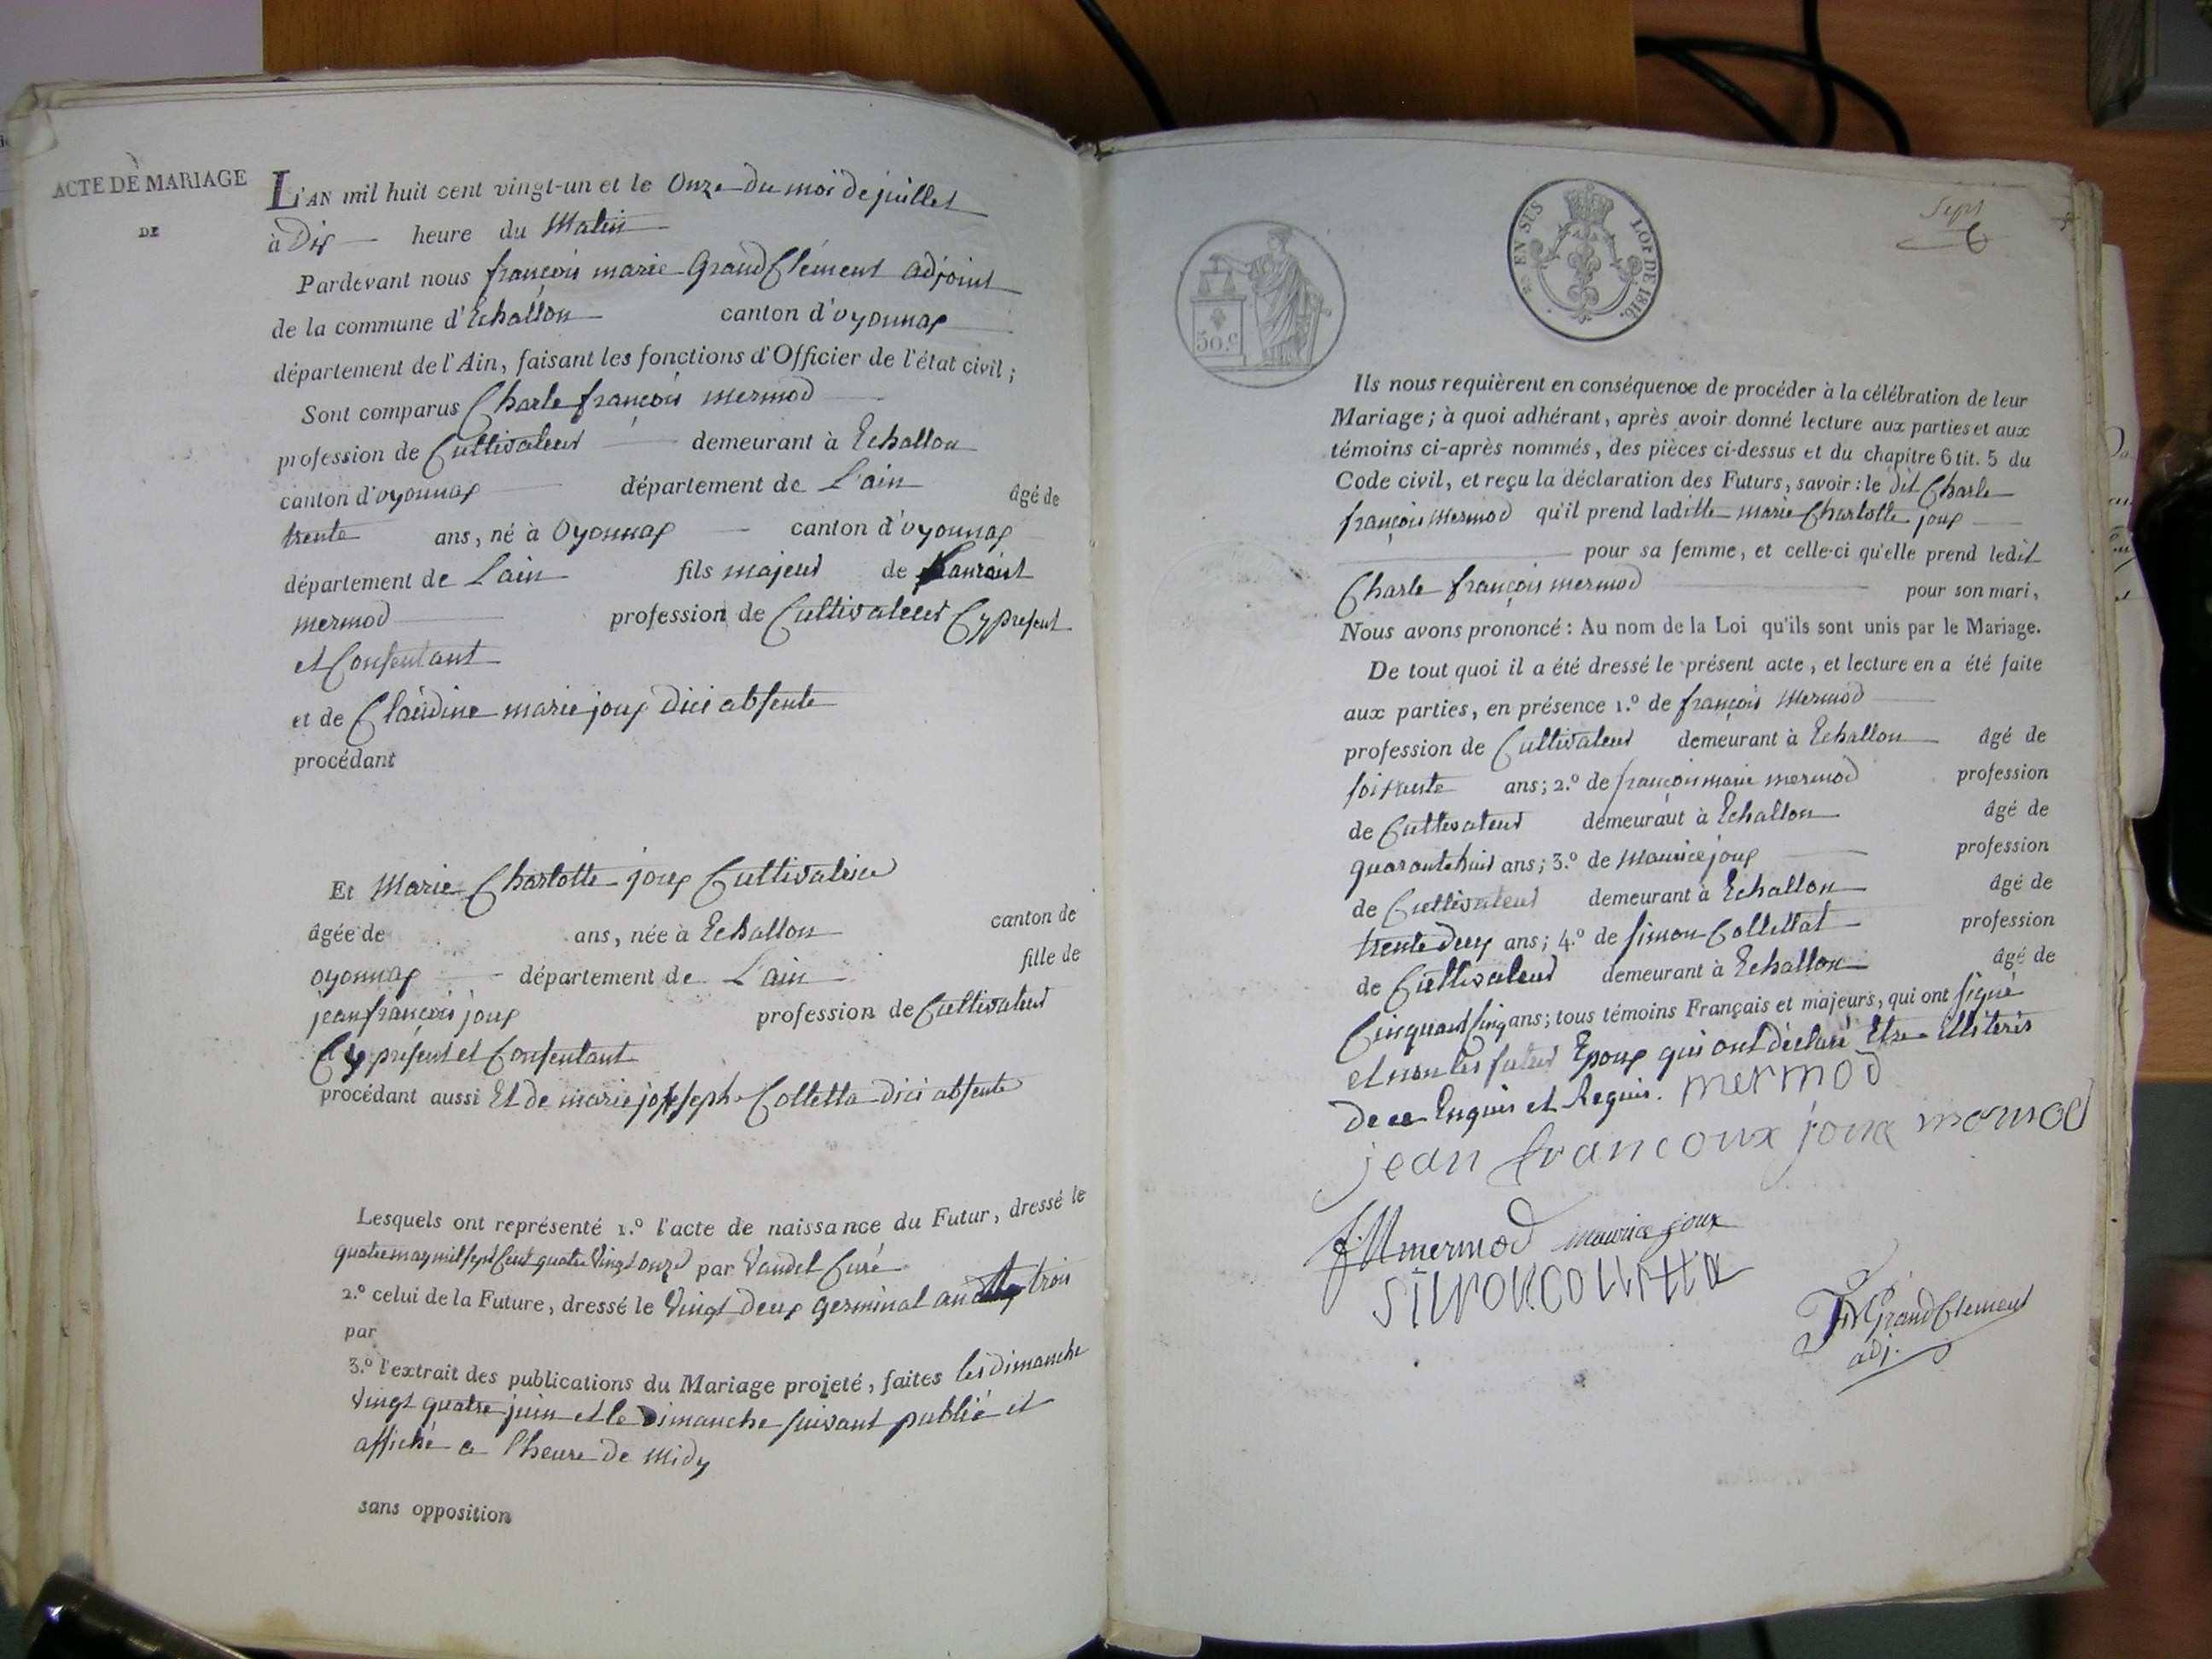 ACTE DE MARIAGE
DE
L'AN mil huit cent vingt-un et le Onze du moi de juillet
à Dix heure du Matin
Pardevant nous françois marie Grand Clément adjoint
de la commune d'Echallon canton d'oyonnax
département de l'Ain, faisant les fonctions d'Officier de l'état civil ;
Sont comparus Charle françois mermod
profession de Cultivateur demeurant à Echallon
canton d'oyonnax département de L'ain âgé de
trente ans, né à Oyonnax canton d'oyonnax
département de L'ain fils majeur de
mermod profession de Cultivateur Cy present
et Consentant
et de Claudine marie joux dici absente
procédant
Et Marie Charlotte joux Cultivatrice
âgée de ans, née à Echallon canton de
oyonnax département de L'ain fille de
jean françois joux profession de Cultivateur
Cy présent et Consentant
procédant aussi Et de marie joseph Colletta dici absente
Lesquels ont représenté 1.º l'acte de naissance du Futur, dressé le
quatre may mil sept Cent quatre Vingt onze par Vandel Curé
2.º celui de la Future, dressé le Vingt deux germinal an trois
par
3.º l'extrait des publications du Mariage projeté, faites les dimanche
Vingt quatre juin et le Dimanche suivant publié et
affiché a l'heure de midy
sans opposition
Sept
EN SUS LOI DE 1816.
50.c
Ils nous requièrent en conséquence de procéder à la célébration de leur
Mariage ; à quoi adhérant, après avoir donné lecture aux parties et aux
témoins ci-après nommés, des pièces ci-dessus et du chapitre 6 tit. 5 du
Code civil, et reçu la déclaration des Futurs, savoir : le dit Charle
françois mermod qu'il prend laditte marie Charlotte joux
pour sa femme, et celle-ci qu'elle prend ledit
Charle françois mermod pour son mari,
Nous avons prononcé : Au nom de la Loi qu'ils sont unis par le Mariage.
De tout quoi il a été dressé le présent acte, et lecture en a été faite
aux parties, en présence 1.º de françois mermod
profession de Cultivateur demeurant à Echallon âgé de
soixante ans ; 2.º de françois marie mermod profession
de Cultivateur demeurant à Echallon âgé de
quarante huit ans ; 3.º de Maurice joux profession
de Cultivateur demeurant à Echallon âgé de
trente deux ans ; 4.º de simon Collettat profession
de Cultivateur demeurant à Echallon âgé de
Cinquant Cinq ans ; tous témoins Français et majeurs, qui ont signé
et non les futur Epoux qui ont déclaré Etre illitérés
de ce Enquis et Requis. mermod
jean francoux joux mermod
f.M mermod maurice joux
SIMON COLLETTA
FM GrandClement
adj.